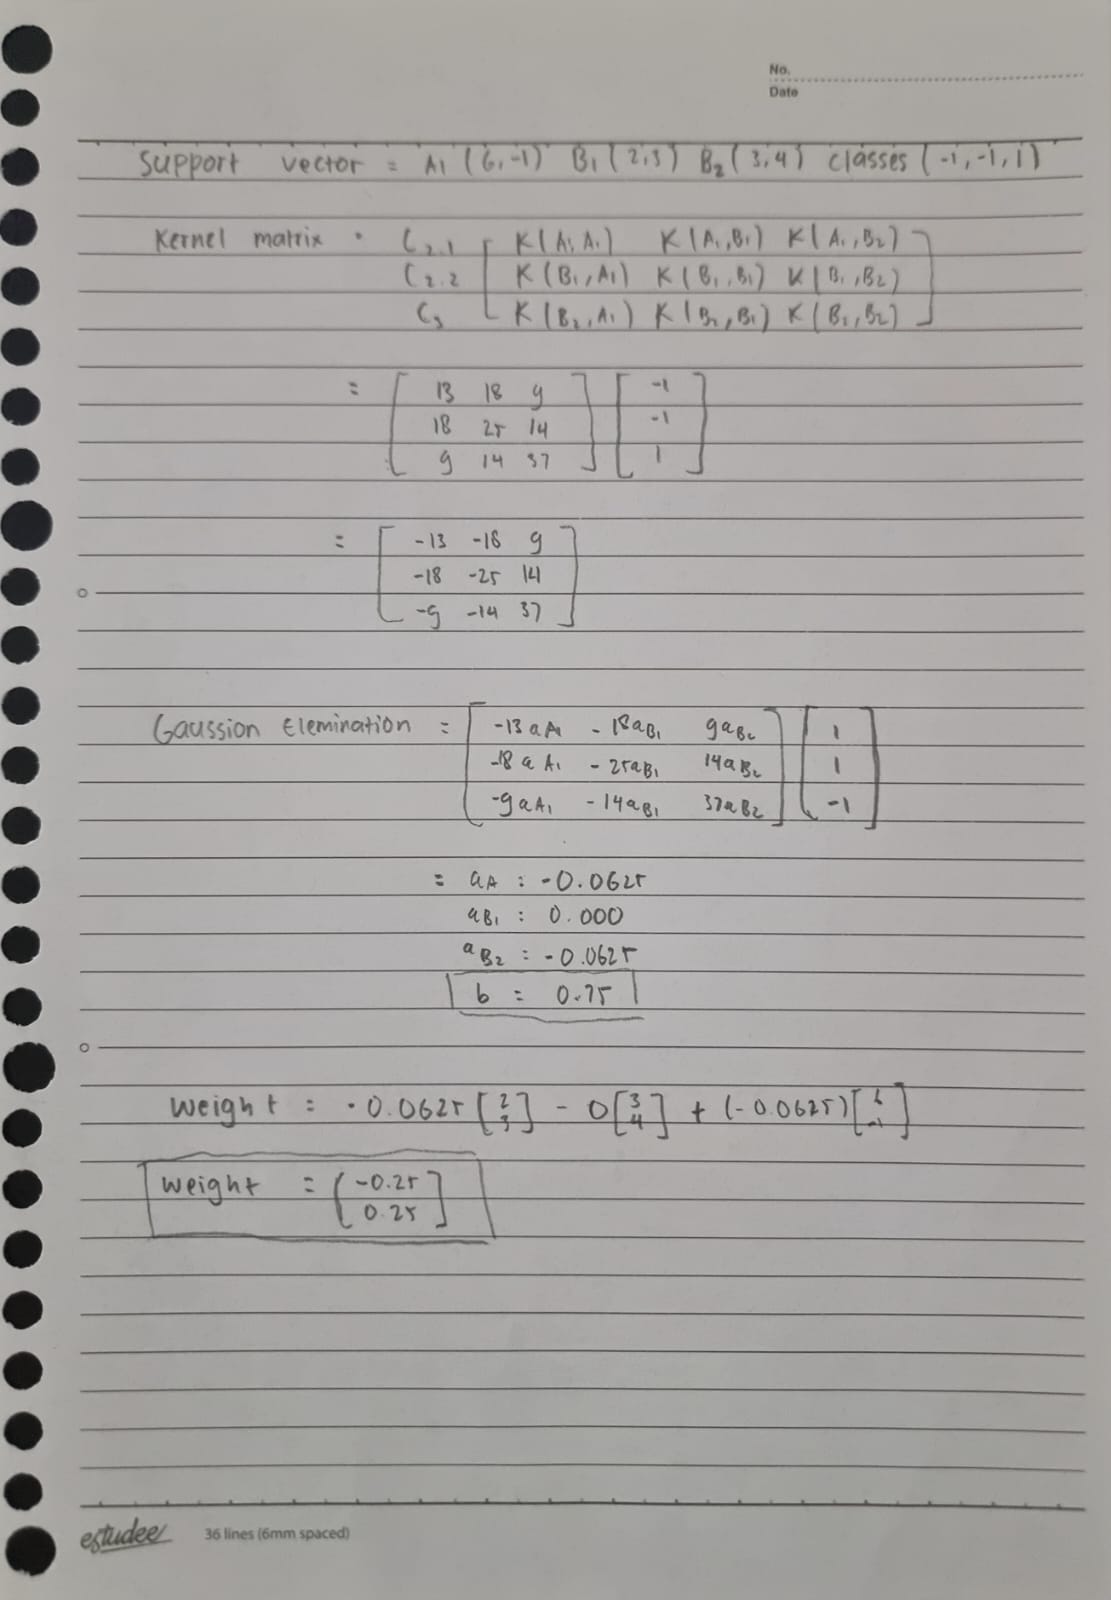 No.
Date
Support vector = A1 (6,-1) B1 (2,3) B2 (3,4) classes (-1,-1,1)
Kernel matrix = C2.1 [ K(A1,A1) K(A1,B1) K(A1,B2) ]
C2.2 [ K(B1,A1) K(B1,B1) K(B1,B2) ]
C3 [ K(B2,A1) K(B2,B1) K(B2,B2) ]
= [ 13 18 9 ] [ -1 ]
[ 18 25 14 ] [ -1 ]
[ 9 14 37 ] [ 1 ]
= [ -13 -18 9 ]
[ -18 -25 14 ]
[ -9 -14 37 ]
Gaussion Elemination = [ -13aA1 - 18aB1 9aB2 ] [ 1 ]
[ -18aA1 - 25aB1 14aB2 ] [ 1 ]
[ -9aA1 - 14aB1 37aB2 ] [ -1 ]
= aA : -0.0625
aB1 : 0.000
aB2 : -0.0625
b = 0.75
Weight = -0.0625 [ 2 3 ] - 0 [ 3 4 ] + (-0.0625) [ 6 -1 ]
Weight = [ -0.25
0.25 ]
estudee 36 lines (6mm spaced)